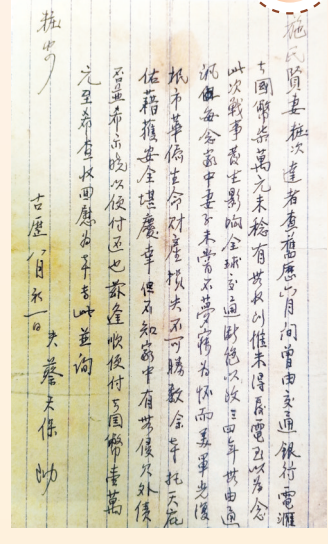 施氏賢妻粧次達者查舊歷六月間曾由交通銀行電滙
去國幣柒萬元未稔有無收到惟未得覆電至以為念
此次戰事發生影响全球交通斷絕以致三四年無由通
訊無每念家中妻子未嘗不夢寐為懷而美軍光復
岷市華僑生命財產損失不可勝數余幸托天庇
佑藉獲安全堪慶幸但不知家中有無債欠外債
若是希示曉以便付還也茲逢順便付去國幣壹萬
元至希查收回應為幸專此並詢
粧安
古歷八月初一日
夫蔡天保